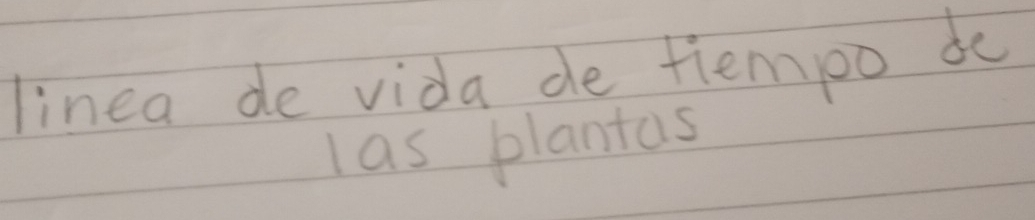 linea de vida de tiempo de
las plantas